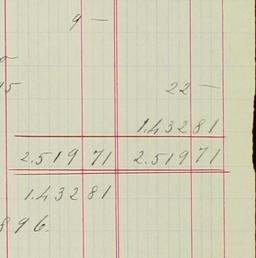 9 —
5
22 —
1.432 81
2.519 71 2.519 71
1.432 81
896.